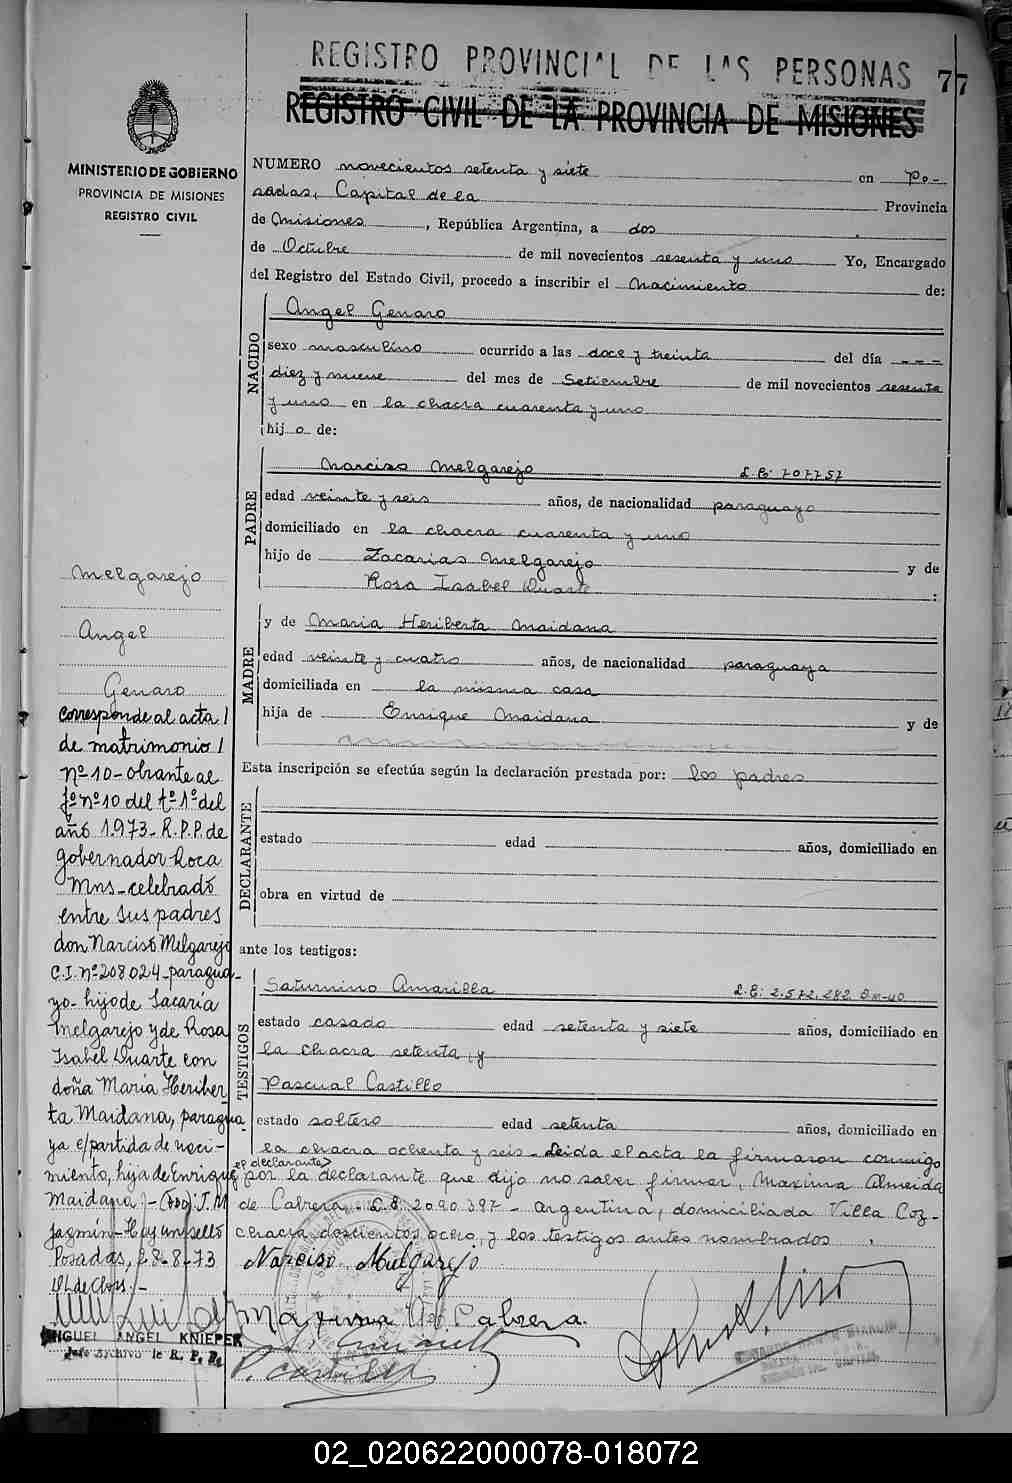 REGISTRO PROVINCIAL DE LAS PERSONAS
77
REGISTRO CIVIL DE LA PROVINCIA DE MISIONES
MINISTERIO DE GOBIERNO
PROVINCIA DE MISIONES
REGISTRO CIVIL
NUMERO novecientos setenta y siete en Po-
sadas, Capital de la Provincia
de Misiones, República Argentina, a dos
de Octubre de mil novecientos sesenta y uno Yo, Encargado
del Registro del Estado Civil, procedo a inscribir el Nacimiento de:
NACIDO
Angel Genaro
sexo masculino ocurrido a las doce y treinta del día ---
diez y nueve del mes de Setiembre de mil novecientos sesenta
y uno en la chacra cuarenta y uno
hijo de:
PADRE
Narciso Melgarejo L.E: 707.757
edad veinte y seis años, de nacionalidad paraguayo
domiciliado en la chacra cuarenta y uno
hijo de Zacarias Melgarejo y de
Rosa Isabel Duarte :
MADRE
y de Maria Heriberta Maidana
edad veinte y cuatro años, de nacionalidad paraguaya
domiciliada en la misma casa
hija de Enrique Maidana y de
Esta inscripción se efectúa según la declaración prestada por: los padres
DECLARANTE
estado edad años, domiciliado en
obra en virtud de
ante los testigos:
TESTIGOS
Saturnino Amarilla L.E: 2.572.282
estado casado edad setenta y siete años, domiciliado en
la chacra setenta, y
Pascual Castillo
estado soltero edad setenta años, domiciliado en
la chacra ochenta y seis - Leida el acta la firmaron conmigo
el declarante
por la declarante que dijo no saber firmar, Maxima Almeida
de Cabrera - L.E. 2090.397 - argentina, domiciliada Villa Coz-
chacra doscientos ocho, y los testigos antes nombrados.
Narciso Melgarejo
Maxima A. de Cabrera.
P. Castillo
Melgarejo
Angel
Genaro
Corresponde al acta
de matrimonio
Nº 10- obrante al
fº nº 10 del tº 1º del
año 1.973- R.P.P. de
gobernador Roca
Mns- celebrado
entre sus padres
don Narciso Melgarejo
C.I. nº 208024- paragua-
yo- hijo de Sacaria
Melgarejo y de Rosa
Isabel Duarte con
doña Maria Heriber-
ta Maidana, paragua-
ya s/partida de naci-
miento, hija de Enrique
Maidana
Jazmín- Hay un sello
Posadas, 28-8-73
MIGUEL ANGEL KNIEPER
Jefe Archivo de R. P. P.
02_020622000078-018072